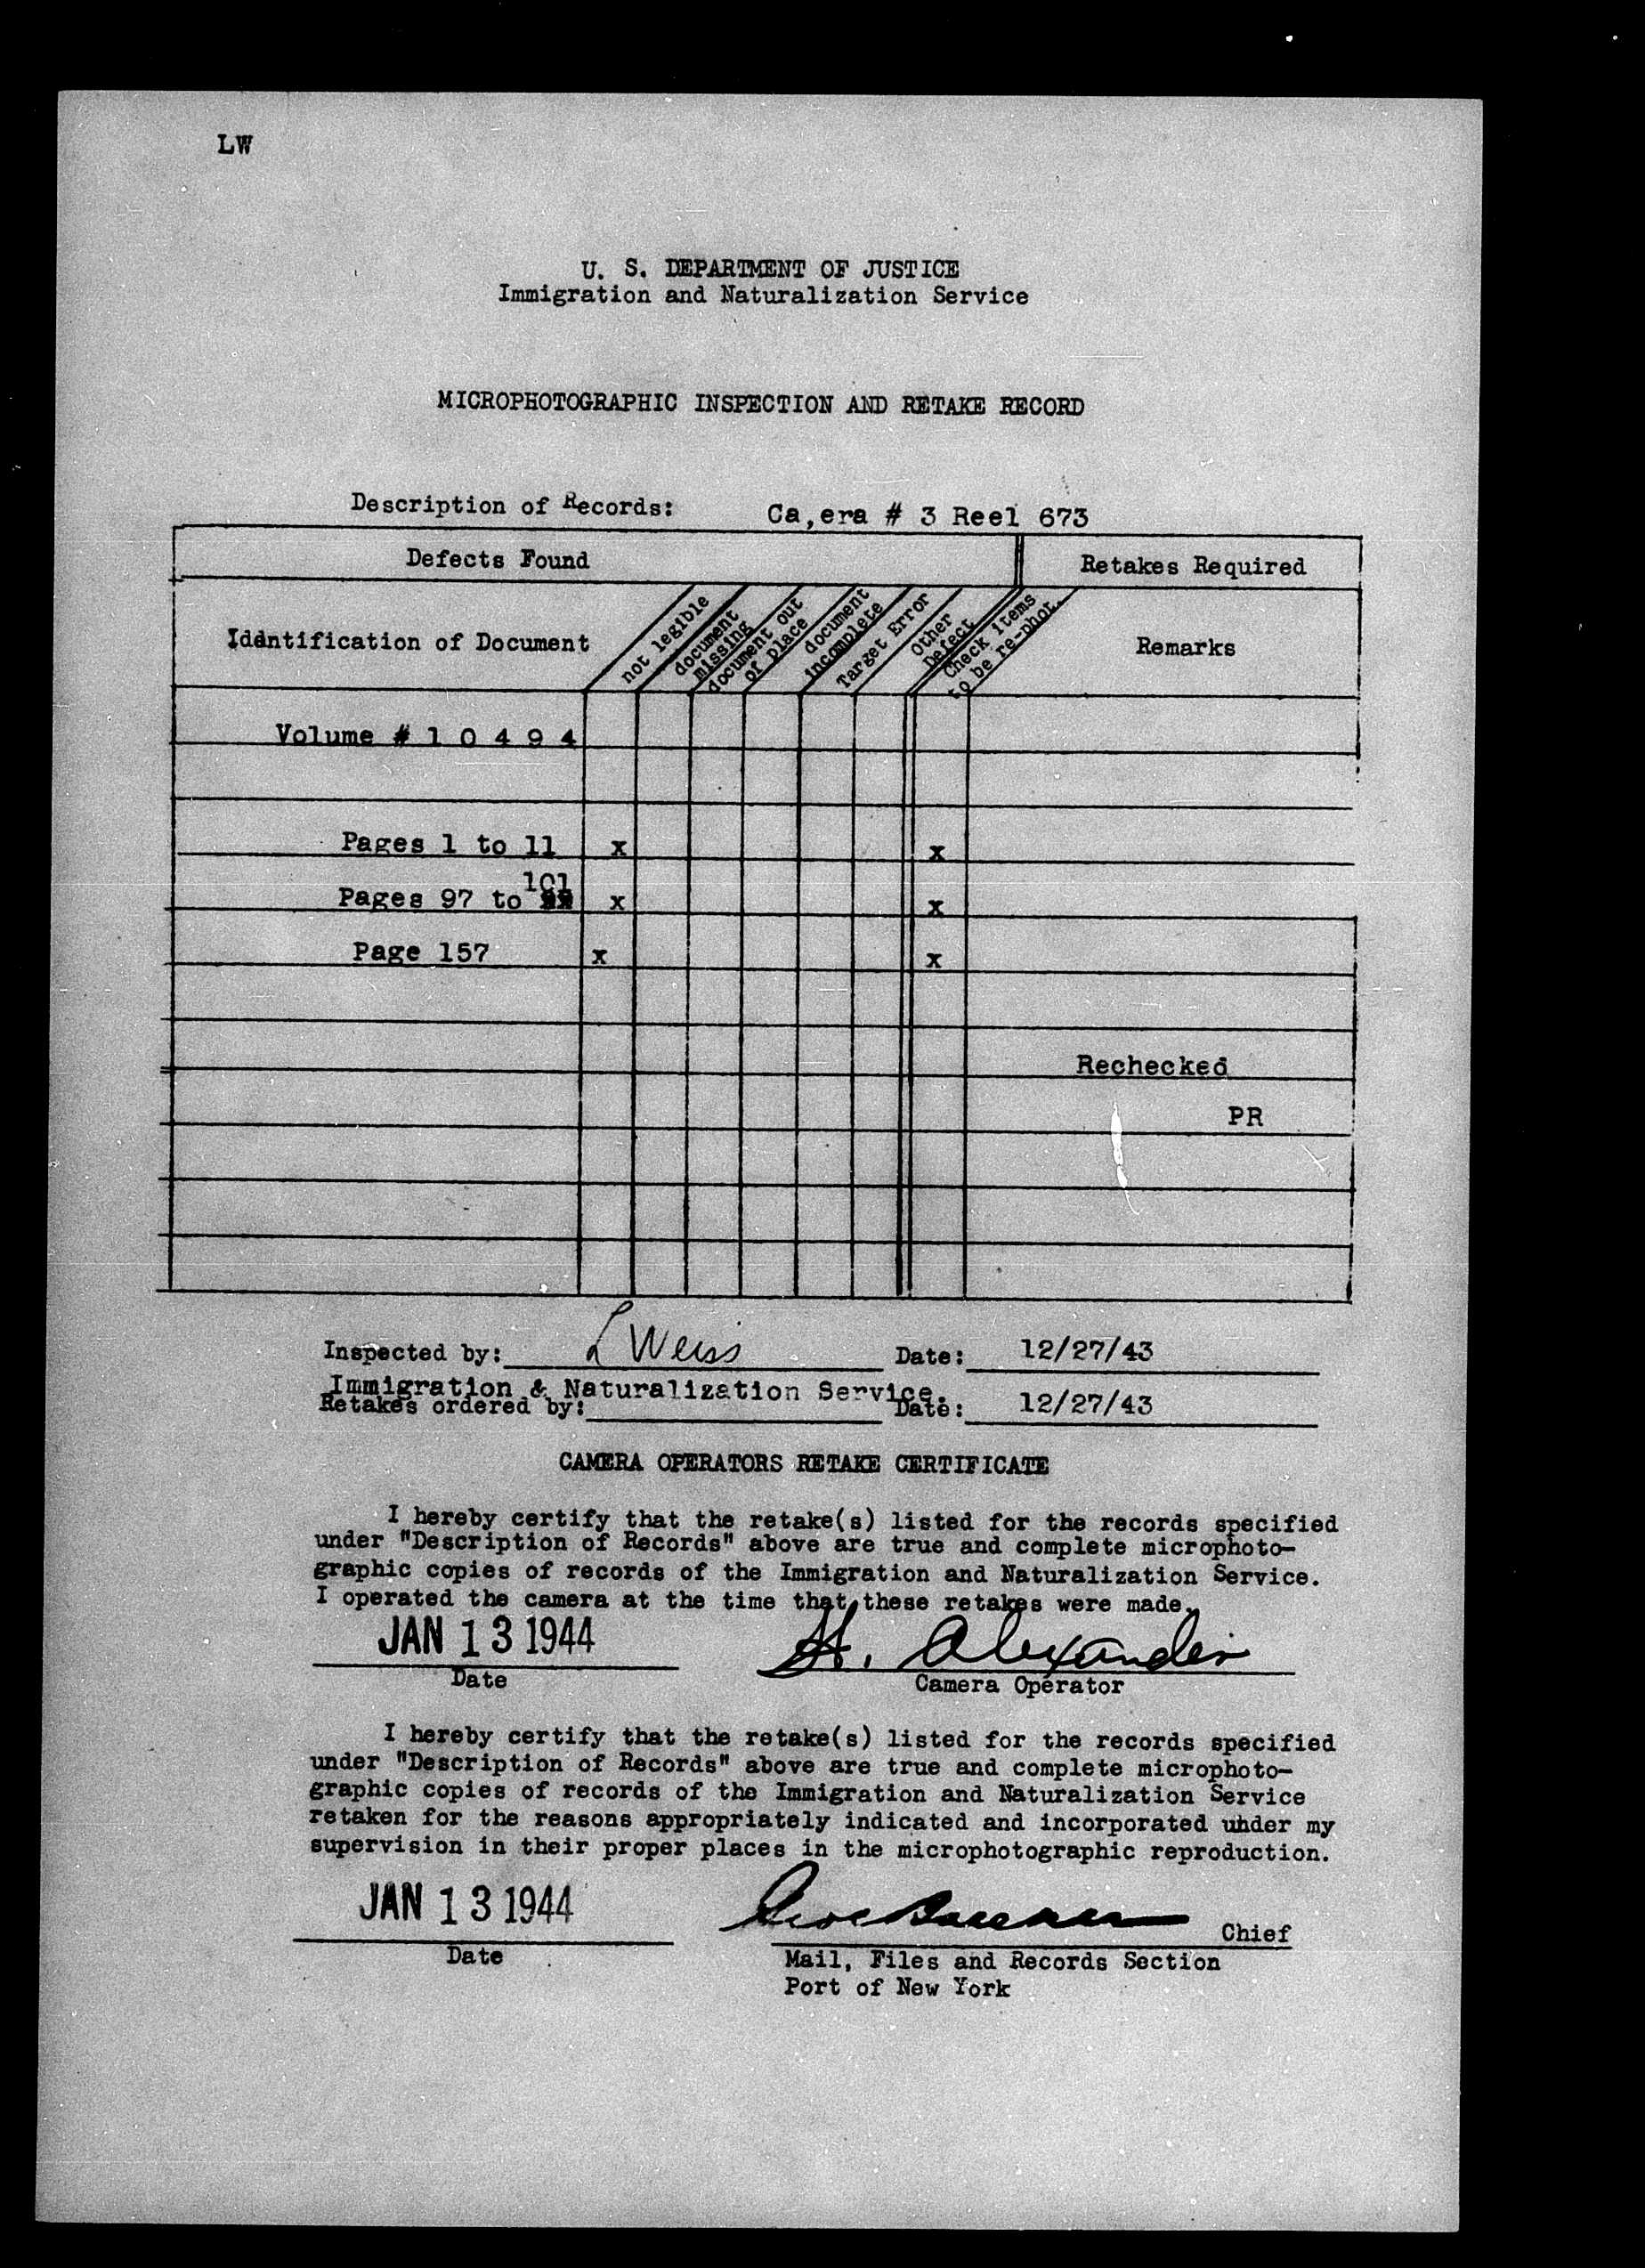 LW
U. S. DEPARTMENT OF JUSTICE
Immigration and Naturalization Service
MICROPHOTOGRAPHIC INSPECTION AND RETAKE RECORD
Description of Records: Ca,era # 3 Reel 673
Defects Found Retakes Required
Iddntification of Document
not legible
document
missing
document out
of place
document
incomplete
Target Error
Other
Defect
Check items
to be re-phot.
Remarks
Volume # 1 0 4 9 4
Pages 1 to 11 x x
101
Pages 97 to x x
Page 157 x x
Rechecked
PR
Inspected by: L Weiss Date: 12/27/43
Immigration & Naturalization Service.
Retakes ordered by: Date: 12/27/43
CAMERA OPERATORS RETAKE CERTIFICATE
I hereby certify that the retake(s) listed for the records specified
under "Description of Records" above are true and complete microphoto-
graphic copies of records of the Immigration and Naturalization Service.
I operated the camera at the time that these retakes were made.
JAN 13 1944 H. Alexander
Date Camera Operator
I hereby certify that the retake(s) listed for the records specified
under "Description of Records" above are true and complete microphoto-
graphic copies of records of the Immigration and Naturalization Service
retaken for the reasons appropriately indicated and incorporated under my
supervision in their proper places in the microphotographic reproduction.
JAN 13 1944 Chief
Date Mail, Files and Records Section
Port of New York